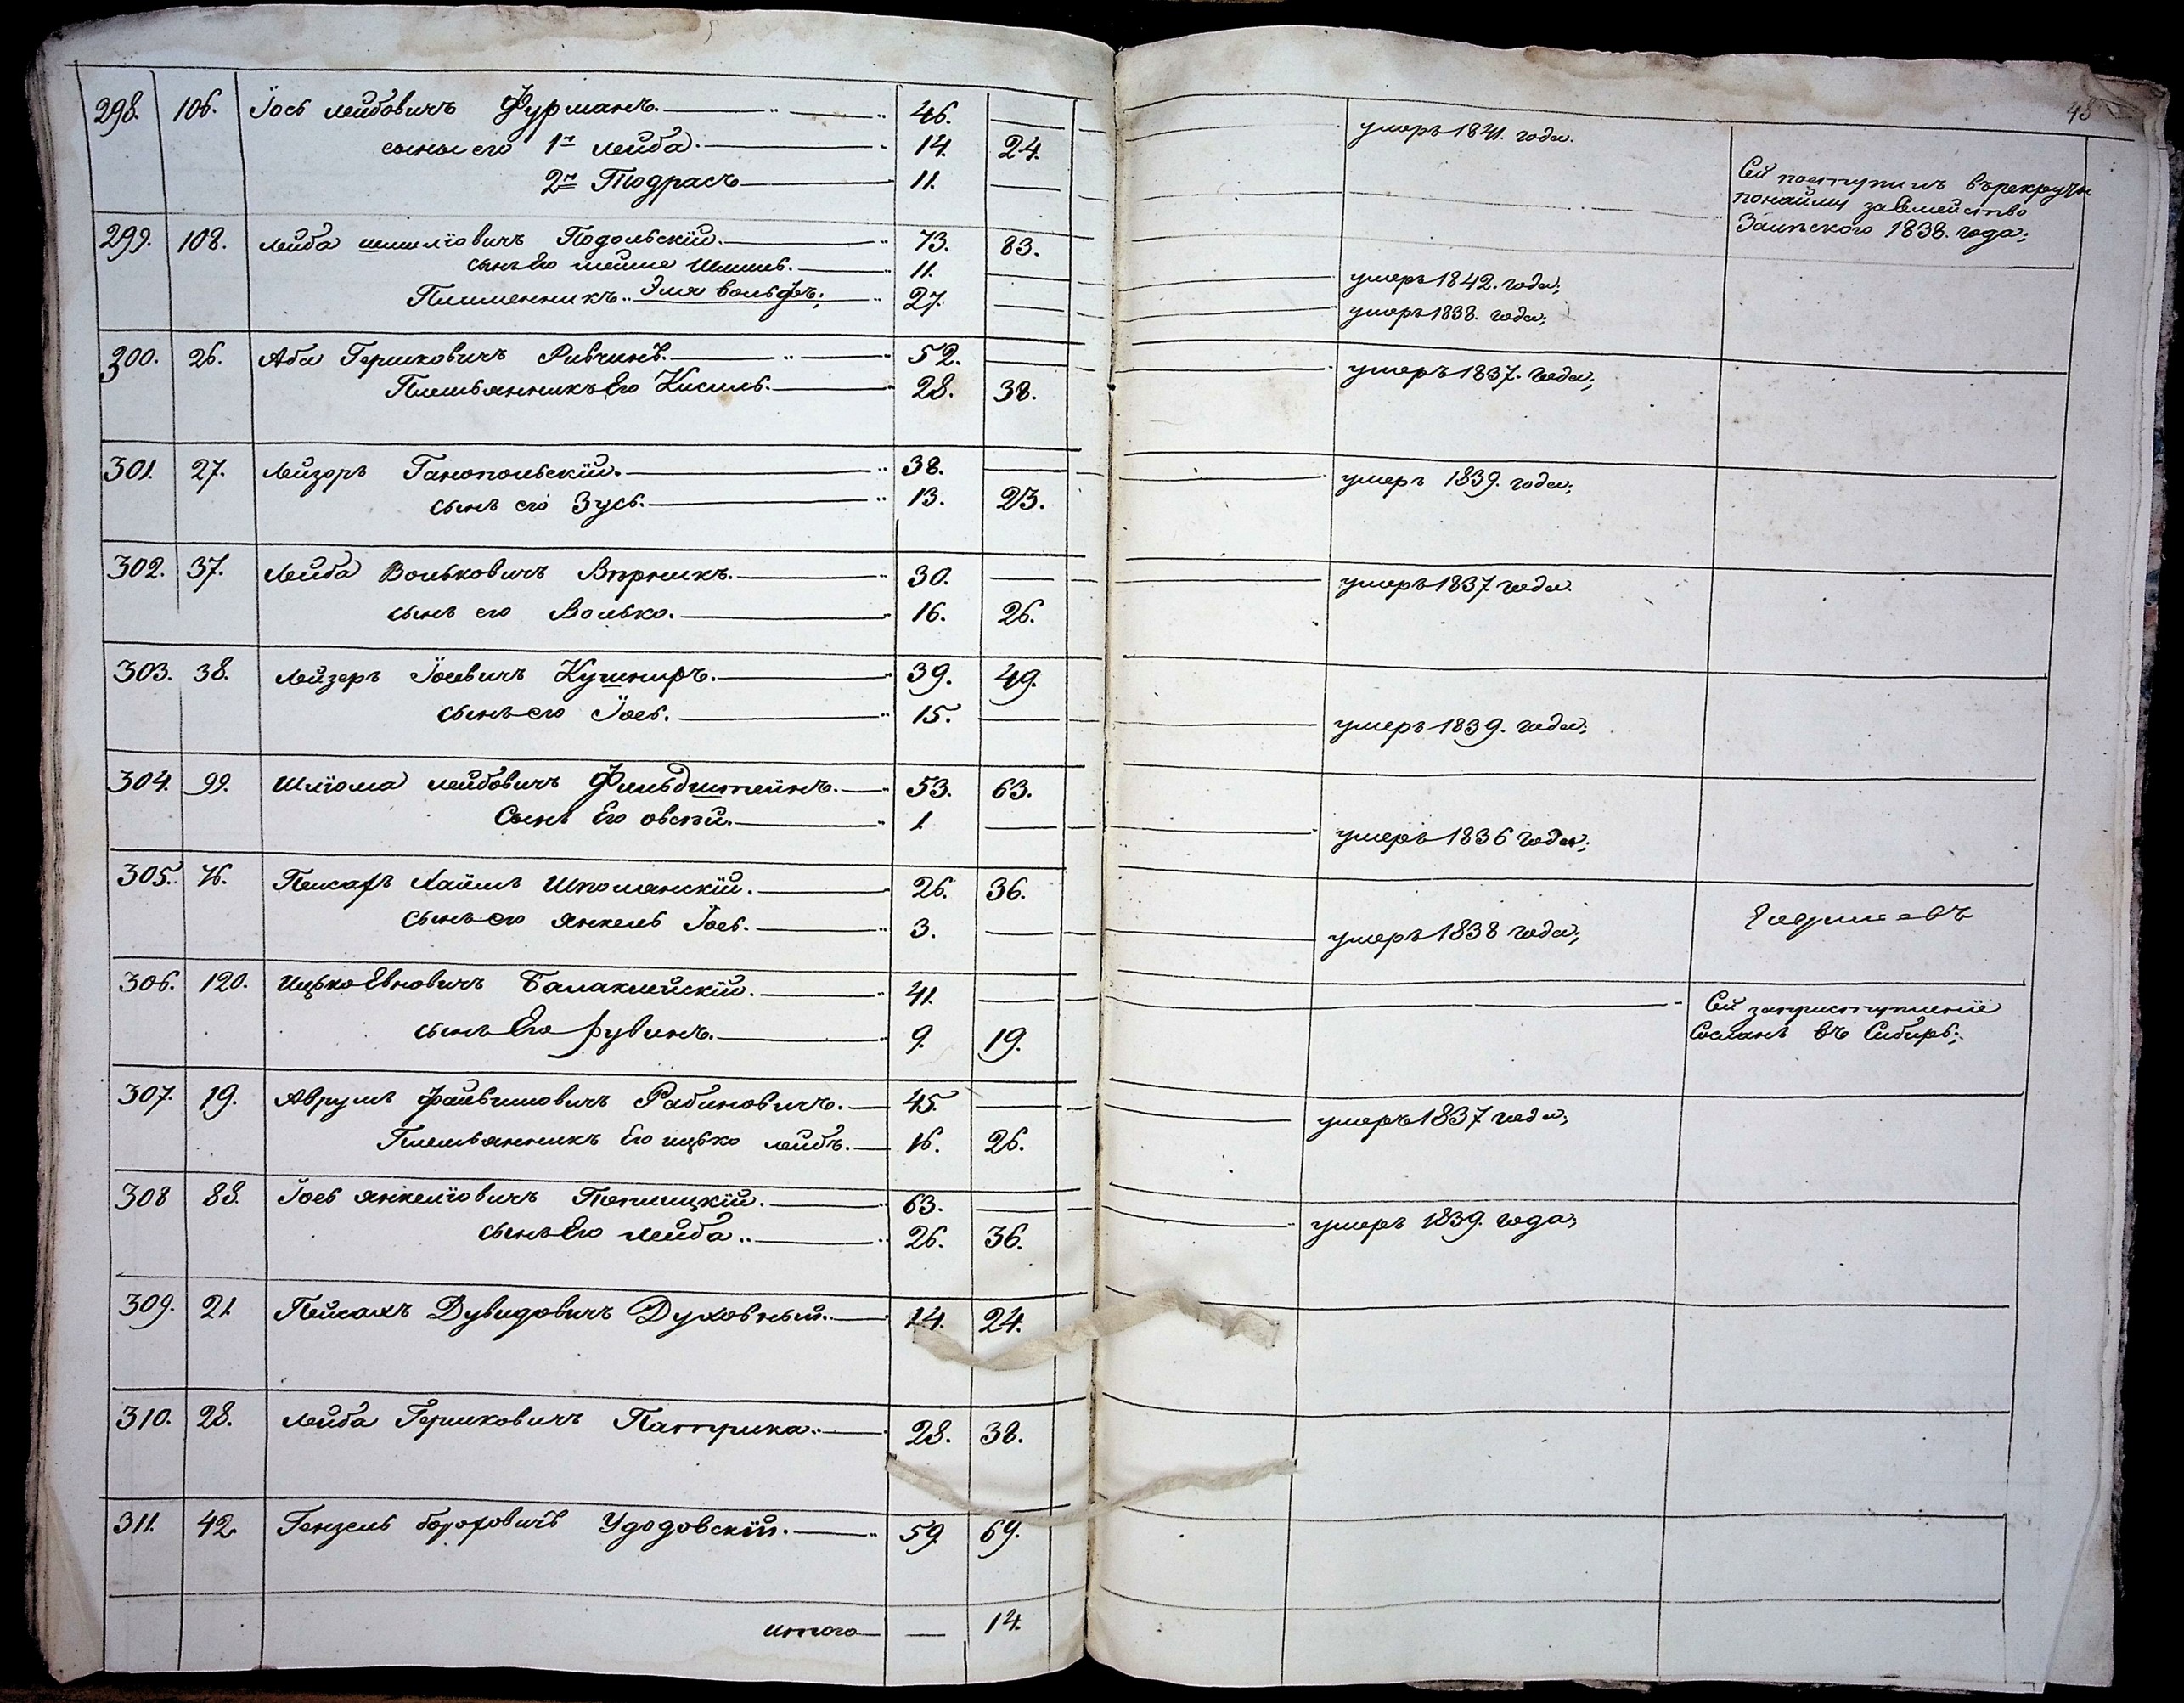 48
298. 106. Іось Лейбовичъ Фурманъ. 46. — умеръ 1841. года.
сыны его 1й Лейба. 14. 24.
2й Тодрасъ 11. — Сей поступилъ въ рекруты
понайму за Семейство
Заипского 1838. года;
299. 108. Лейба Шмиліовичъ Подольскій. 73. 83.
сынъ Его Шмиль. 11. — умеръ 1842. года;
Племенникъ Эля Вольфъ; 27. — умеръ 1838. года;
300. 26. Аба Гершковичъ Ривчинъ. 52. — умеръ 1837. года;
Племьянникъ Его Кисиль. 28. 38.
301. 27. Лейзоръ Ганопольскій. 38. — умеръ 1839. года;
сынъ его Зусь. 13. 23.
302. 37. Лейба Вольковичъ Впрникъ. 30. — умеръ 1837 года.
сынъ его Волько. 16. 26.
303. 38. Лейзеръ Іосевичъ Кушниръ. 39. 49.
сынъ его Іось. 15. — умеръ 1839. года;
304. 99. Шліома Лейбовичъ Фильдштейнъ. 53. 63.
Сынъ Его Овсѣй. 1. — умеръ 1836 года;
305. 76. Пейсахъ Хаимъ Шполянскій. 26. 36.
сынъ его Янкель Іось. 3. — умеръ 1838 года;
306. 120. Ицько Евновичъ Балаклейскій. 41. — Сей заприступленіе
Сосланъ въ Сибирь;
сынъ Его Рувинъ. 9. 19.
307. 19. Аврумъ Файвишовичъ Рабиновичъ. 45. — умеръ 1837 года;
Племьянникъ Его Ицько Лейбъ. 16. 26.
308 88. Іось Янкеліовичъ Теплицкій. 63. — умеръ 1839. года;
сынъ Его Лейба. 26. 36.
309. 21. Пейсахъ Дувидовичъ Духовный. 14. 24.
310. 28. Лейба Гершковичъ Патрика. 28. 38.
311. 42. Гензель Боруховичъ Удодовскій. 59. 69.
итого — 14.